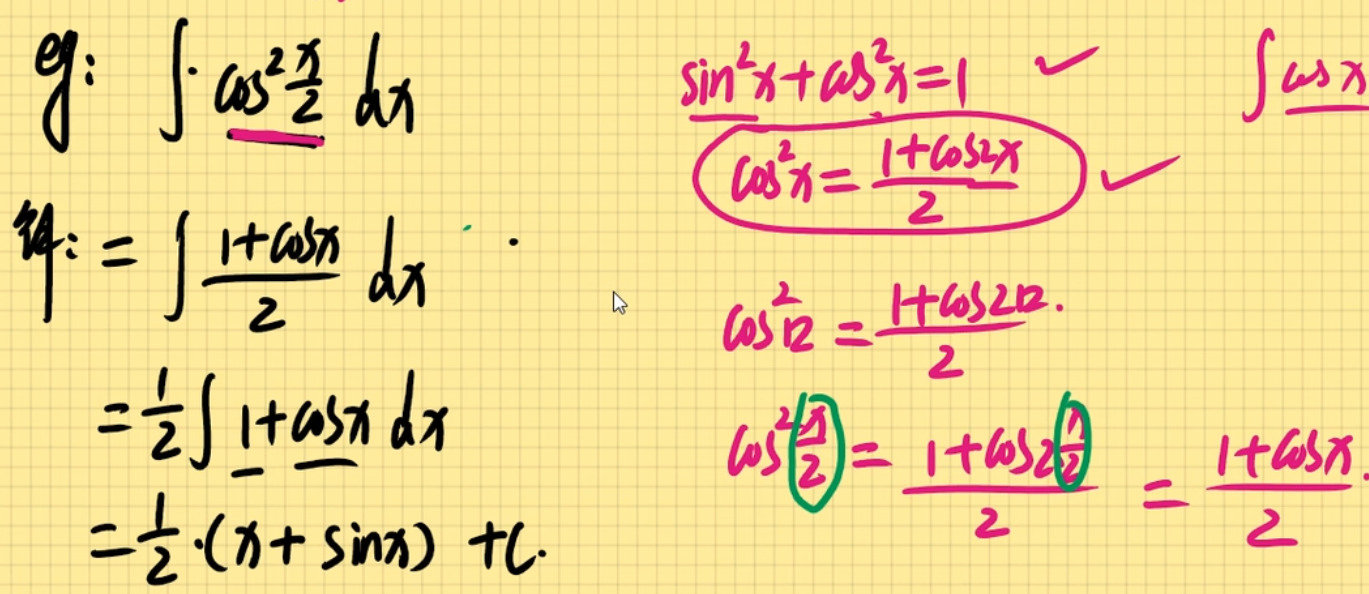 eg: ∫ cos²x/2 dx
解: = ∫ (1+cosx)/2 dx
= 1/2 ∫ 1+cosx dx
= 1/2 ·(x+sinx) +C.
sin²x+cos²x=1 ✓
cos²x = (1+cos2x)/2 ✓
cos²12 = (1+cos2 12)/2.
cos²x/2 = (1+cos2 x/2)/2 = (1+cosx)/2.
∫ cosx